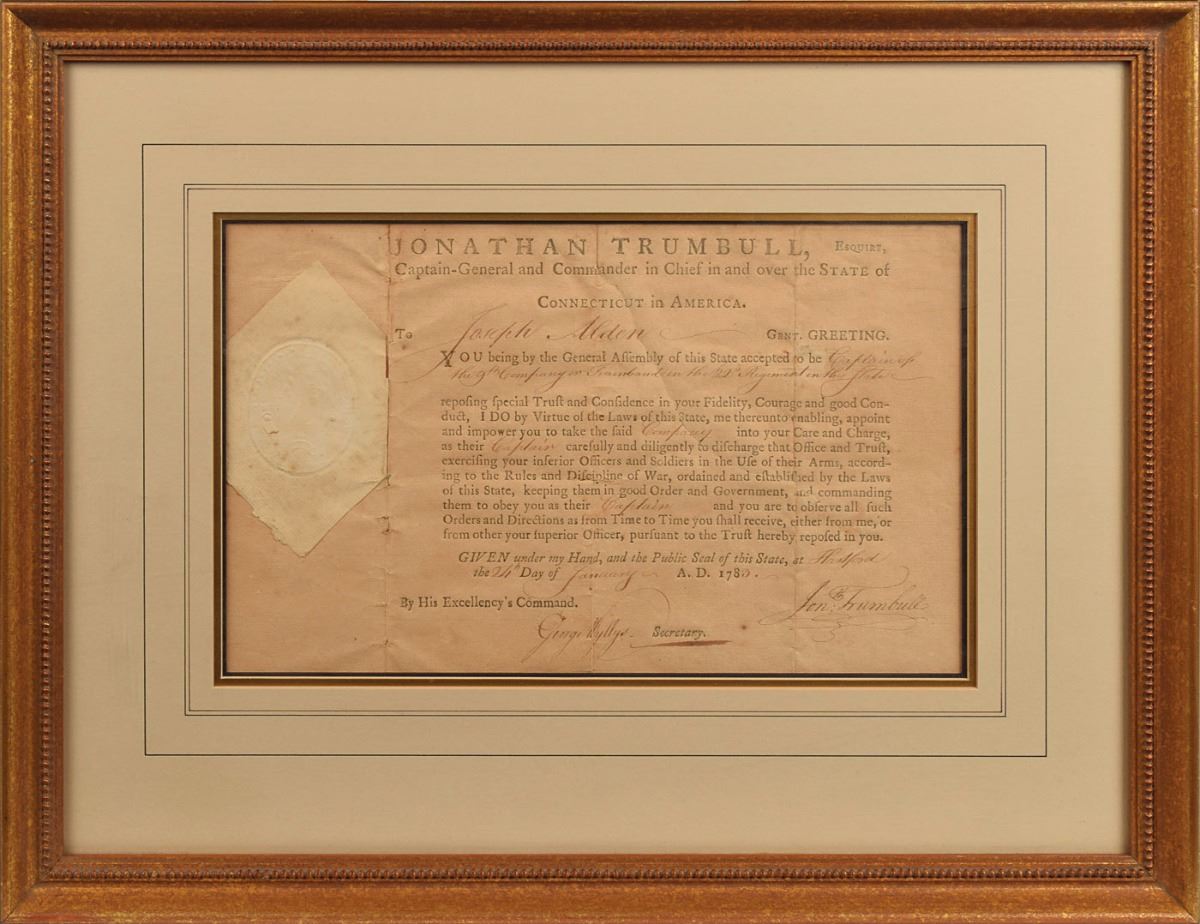 JONATHAN TRUMBULL, Esquire,
Captain-General and Commander in Chief in and over the STATE of
CONNECTICUT in AMERICA.
To Joseph Alden Gent. GREETING.
YOU being by the General Aſſembly of this State accepted to be Captain of
the 9th Company or Trainband in the 22d Regiment in this State
repoſing ſpecial Truſt and Confidence in your Fidelity, Courage and good Con-
duct, I DO by Virtue of the Laws of this State, me thereunto enabling, appoint
and impower you to take the ſaid Company into your Care and Charge,
as their Captain carefully and diligently to diſcharge that Office and Truſt,
exerciſing your inferior Officers and Soldiers in the Uſe of their Arms, accord-
ing to the Rules and Diſcipline of War, ordained and eſtabliſhed by the Laws
of this State, keeping them in good Order and Government, and commanding
them to obey you as their Captain and you are to obſerve all ſuch
Orders and Directions as from Time to Time you ſhall receive, either from me, or
from other your ſuperior Officer, purſuant to the Truſt hereby repoſed in you.
GIVEN under my Hand, and the Public Seal of this State, at Hartford
the 24th Day of January A. D. 178
By His Excellency's Command.
Jonth Trumbull
George Wyllys Secretary.